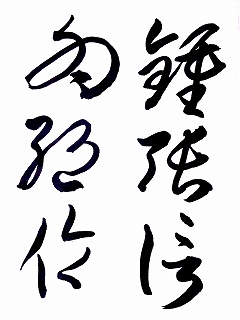 鍾張信
為絕倫